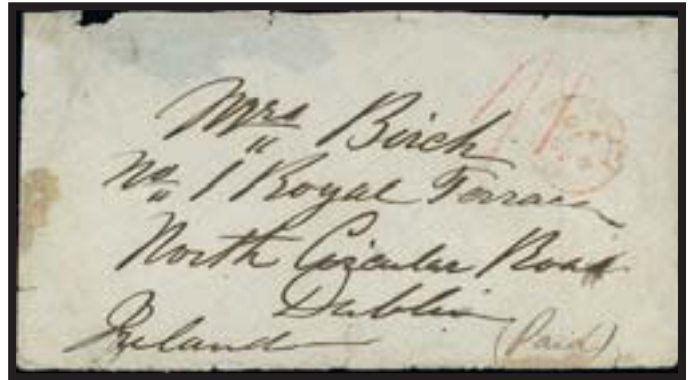 Mrs Birch
No 1 Royal Terrace
North Circular Road
Dublin
Ireland
(Paid)